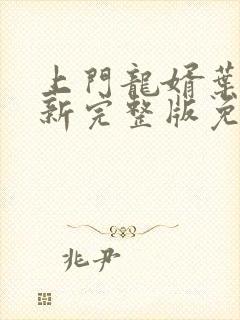 上門龍婿葉
新完整版免
兆尹